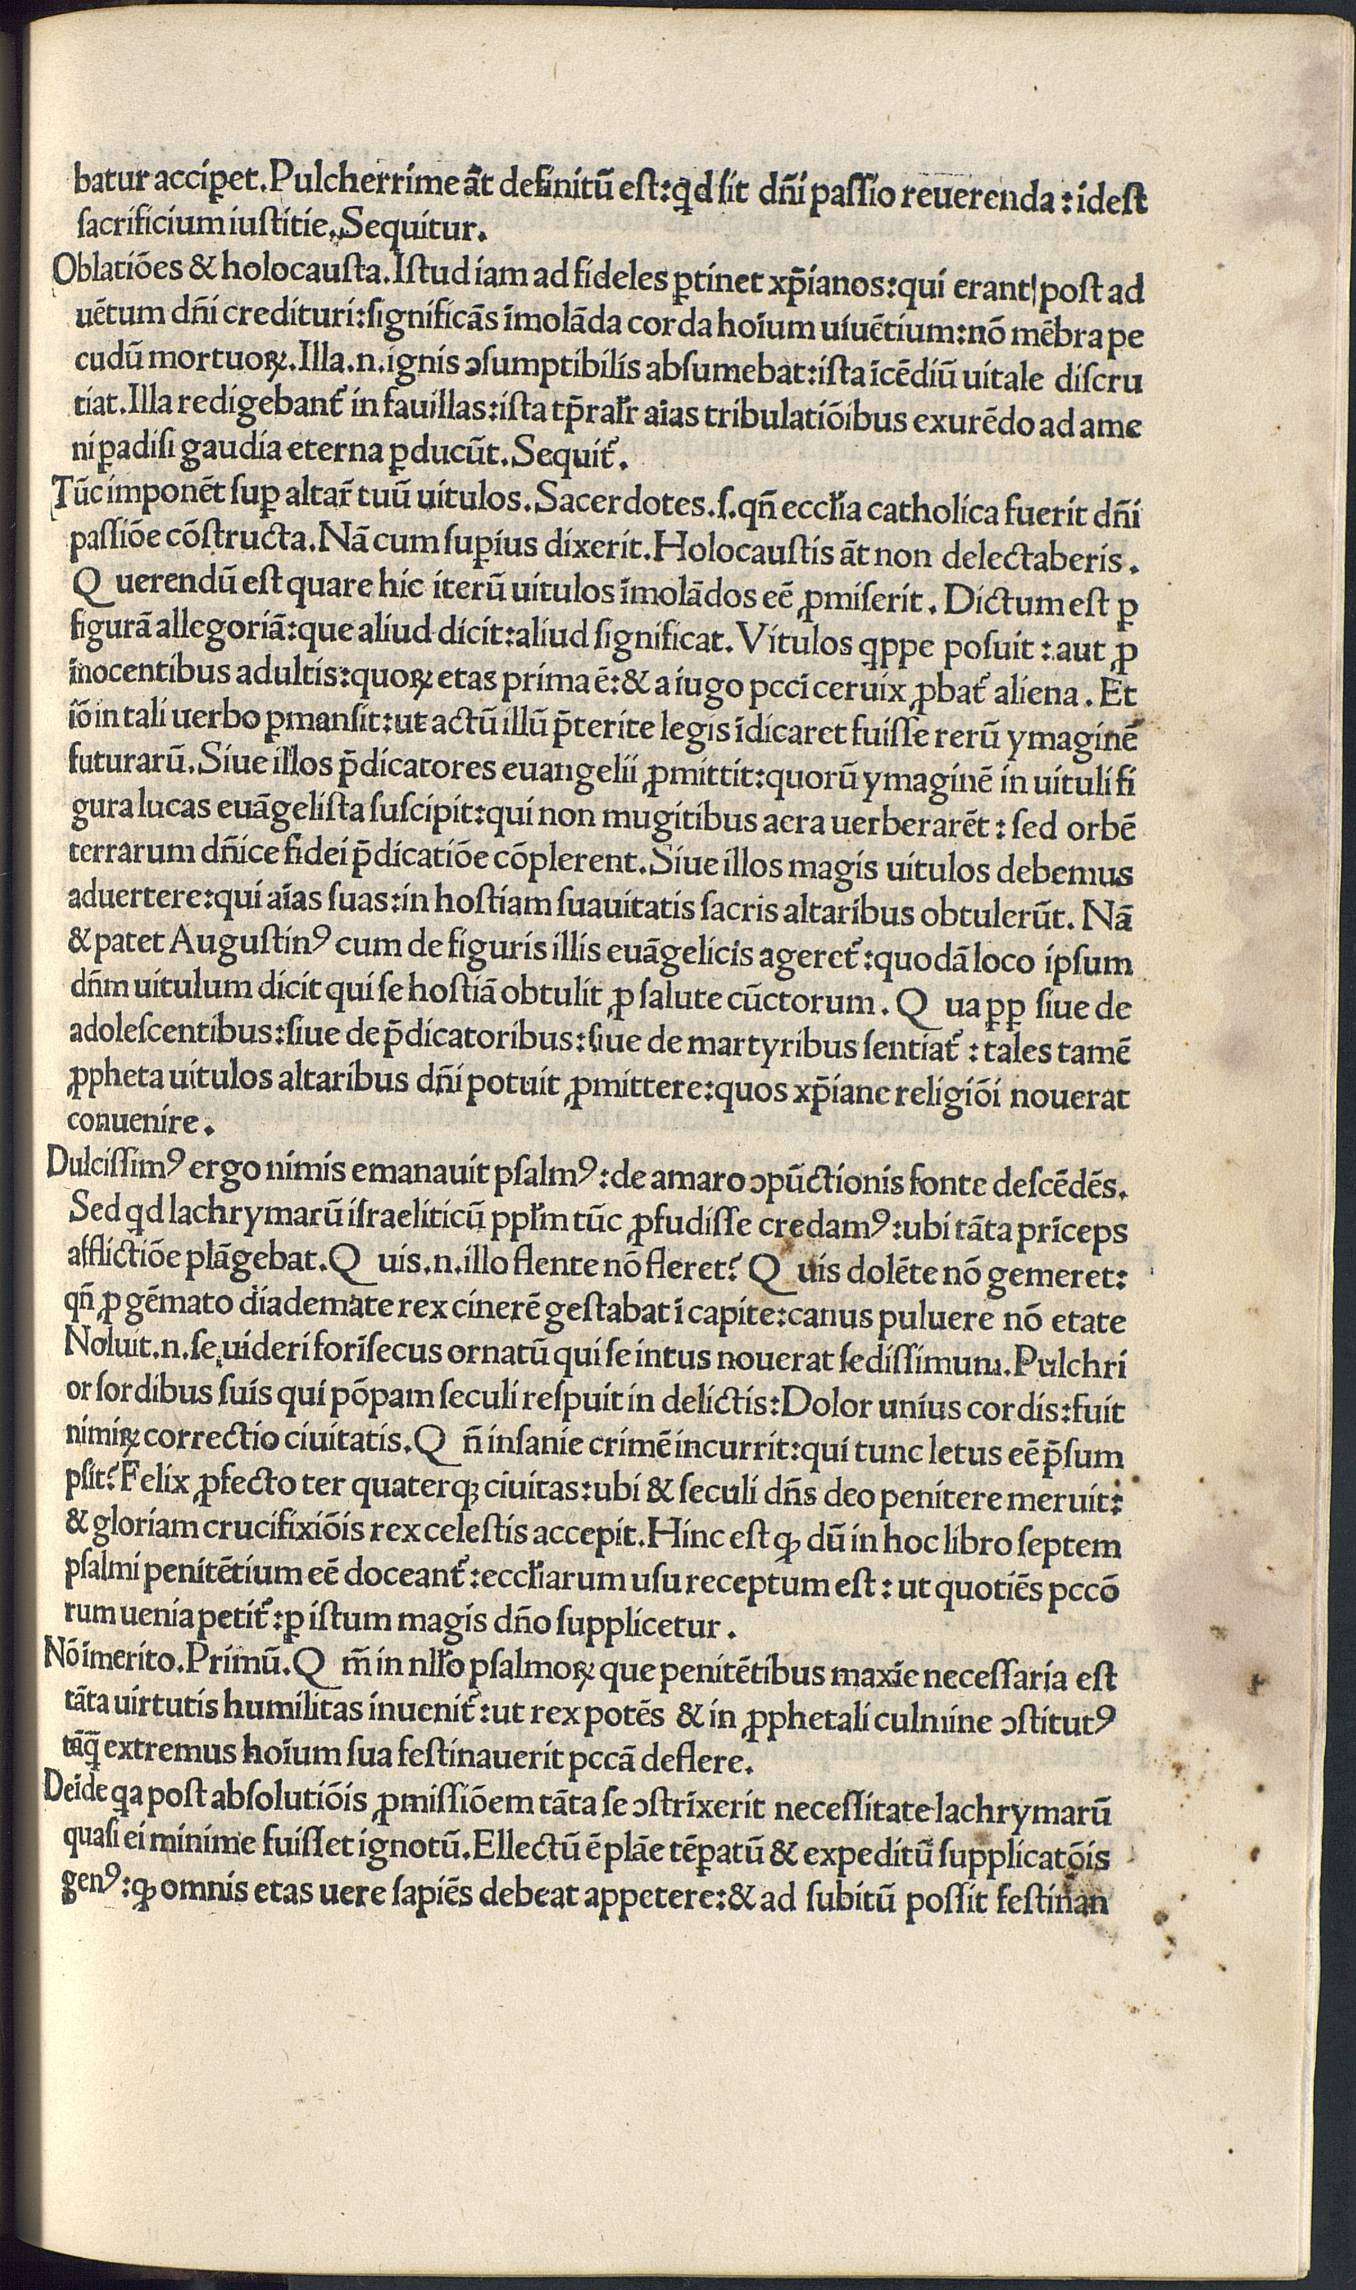 batur acciꝑet. Pulcherrime āt definitū est: qd sit dn̄i passio reuerenda: idest
sacrificium iustitie. Sequitur.
Oblatiōes & holocausta. Istud iam ad fideles ꝑtinet xp̄ianos: qui erant post ad
uētum dn̄i credituri: significās īmolāda corda hoīum uiuētium: nō mēbra pe
cudū mortuoꝝ. Illa .n. ignis ↄsumptibilis absumebat: ista īcēdiū uitale discru
tiat. Illa redigebant᷑ in fauillas: ista tp̄ral̄r aīas tribulatiōibus exurēdo ad ame
ni ꝑadisi gaudia eterna ꝑducūt. Sequit᷑.
Tūc imponēt suꝑ altar̄ tuū uitulos. Sacerdotes .s. qn̄ eccl̄ia catholica fuerit dn̄i
passiōe cōstructa. Nā cum suꝑius dixerit. Holocaustis āt non delectaberis.
Q uerendū est quare hic iterū uitulos īmolādos eē ꝓmiserit. Dictum est ꝑ
figurā allegoriā: que aliud dicit: aliud significat. Vitulos qppe posuit: aut ꝓ
īnocentibus adultis: quoꝝ etas prima ē: & a iugo pccī ceruix ꝓbat᷑ aliena. Et
iō in tali uerbo ꝑmansit: ut actū illū p̄terite legis īdicaret fuisse rerū ymaginē
futurarū. Siue illos p̄dicatores euangelii ꝓmittit: quorū ymaginē in uituli fi
gura lucas euāgelista suscipit: qui non mugitibus aera uerberarēt: sed orbē
terrarum dn̄ice fidei p̄dicatiōe cōplerent. Siue illos magis uitulos debemus
aduertere: qui aīas suas: in hostiam suauitatis sacris altaribus obtulerūt. Nā
& patet Augustinꝰ cum de figuris illis euāgelicis ageret᷑: quodā loco ipsum
dn̄m uitulum dicit qui se hostiā obtulit ꝓ salute cūctorum. Q ua ꝑꝑ siue de
adolescentibus: siue de p̄dicatoribus: siue de martyribus sentiat᷑: tales tamē
ꝓpheta uitulos altaribus dn̄i potuit ꝓmittere: quos xp̄iane religiōi nouerat
conuenire.
Dulcissimꝰ ergo nimis emanauit psalmꝰ: de amaro ↄpūctionis fonte descēdēs.
Sed qd lachrymarū israeliticū ppl̄m tūc ꝓfudisse credamꝰ: ubi tāta prīceps
afflictiōe plāgebat. Q uis .n. illo flente nō fleret? Q uis dolēte nō gemeret:
qn̄ ꝓ gēmato diademate rex cinerē gestabat ī capite: canus puluere nō etate
Noluit .n. se uideri forīsecus ornatū qui se intus nouerat fedissimum. Pulchri
or sordibus suis qui pōpam seculi respuit in delictis: Dolor unius cordis: fuit
nimiꝝ correctio ciuitatis. Q n̄ insanie crimē incurrit: qui tunc letus eē p̄sum
psit? Felix ꝓfecto ter quaterqꝫ ciuitas: ubi & seculi dn̄s deo penitere meruit:
& gloriam crucifixiōis rex celestis accepit. Hinc est qꝫ dū in hoc libro septem
psalmi penitētium eē doceant᷑: eccl̄iarum usu receptum est: ut quotiēs pccō
rum uenia petit᷑: ꝑ istum magis dn̄o supplicetur.
Nō imerito. Primū. Q m̄ in nll̄o psalmoꝝ que penitētibus maxīe necessaria est
tāta uirtutis humilitas inuenit᷑: ut rex potēs & in ꝓphetali culmine ↄstitutꝰ
tāq̄ extremus hoīum sua festinauerit pccā deflere.
Deīde qa post absolutiōis ꝓmissiōem tāta se ↄstrīxerit necessitate lachrymarū
quasi ei minime fuisset ignotū. Ellectū ē plāe tēꝑatū & expeditū supplicatōis
genꝰ: qꝫ omnis etas uere sapiēs debeat appetere: & ad subitū possit festinan